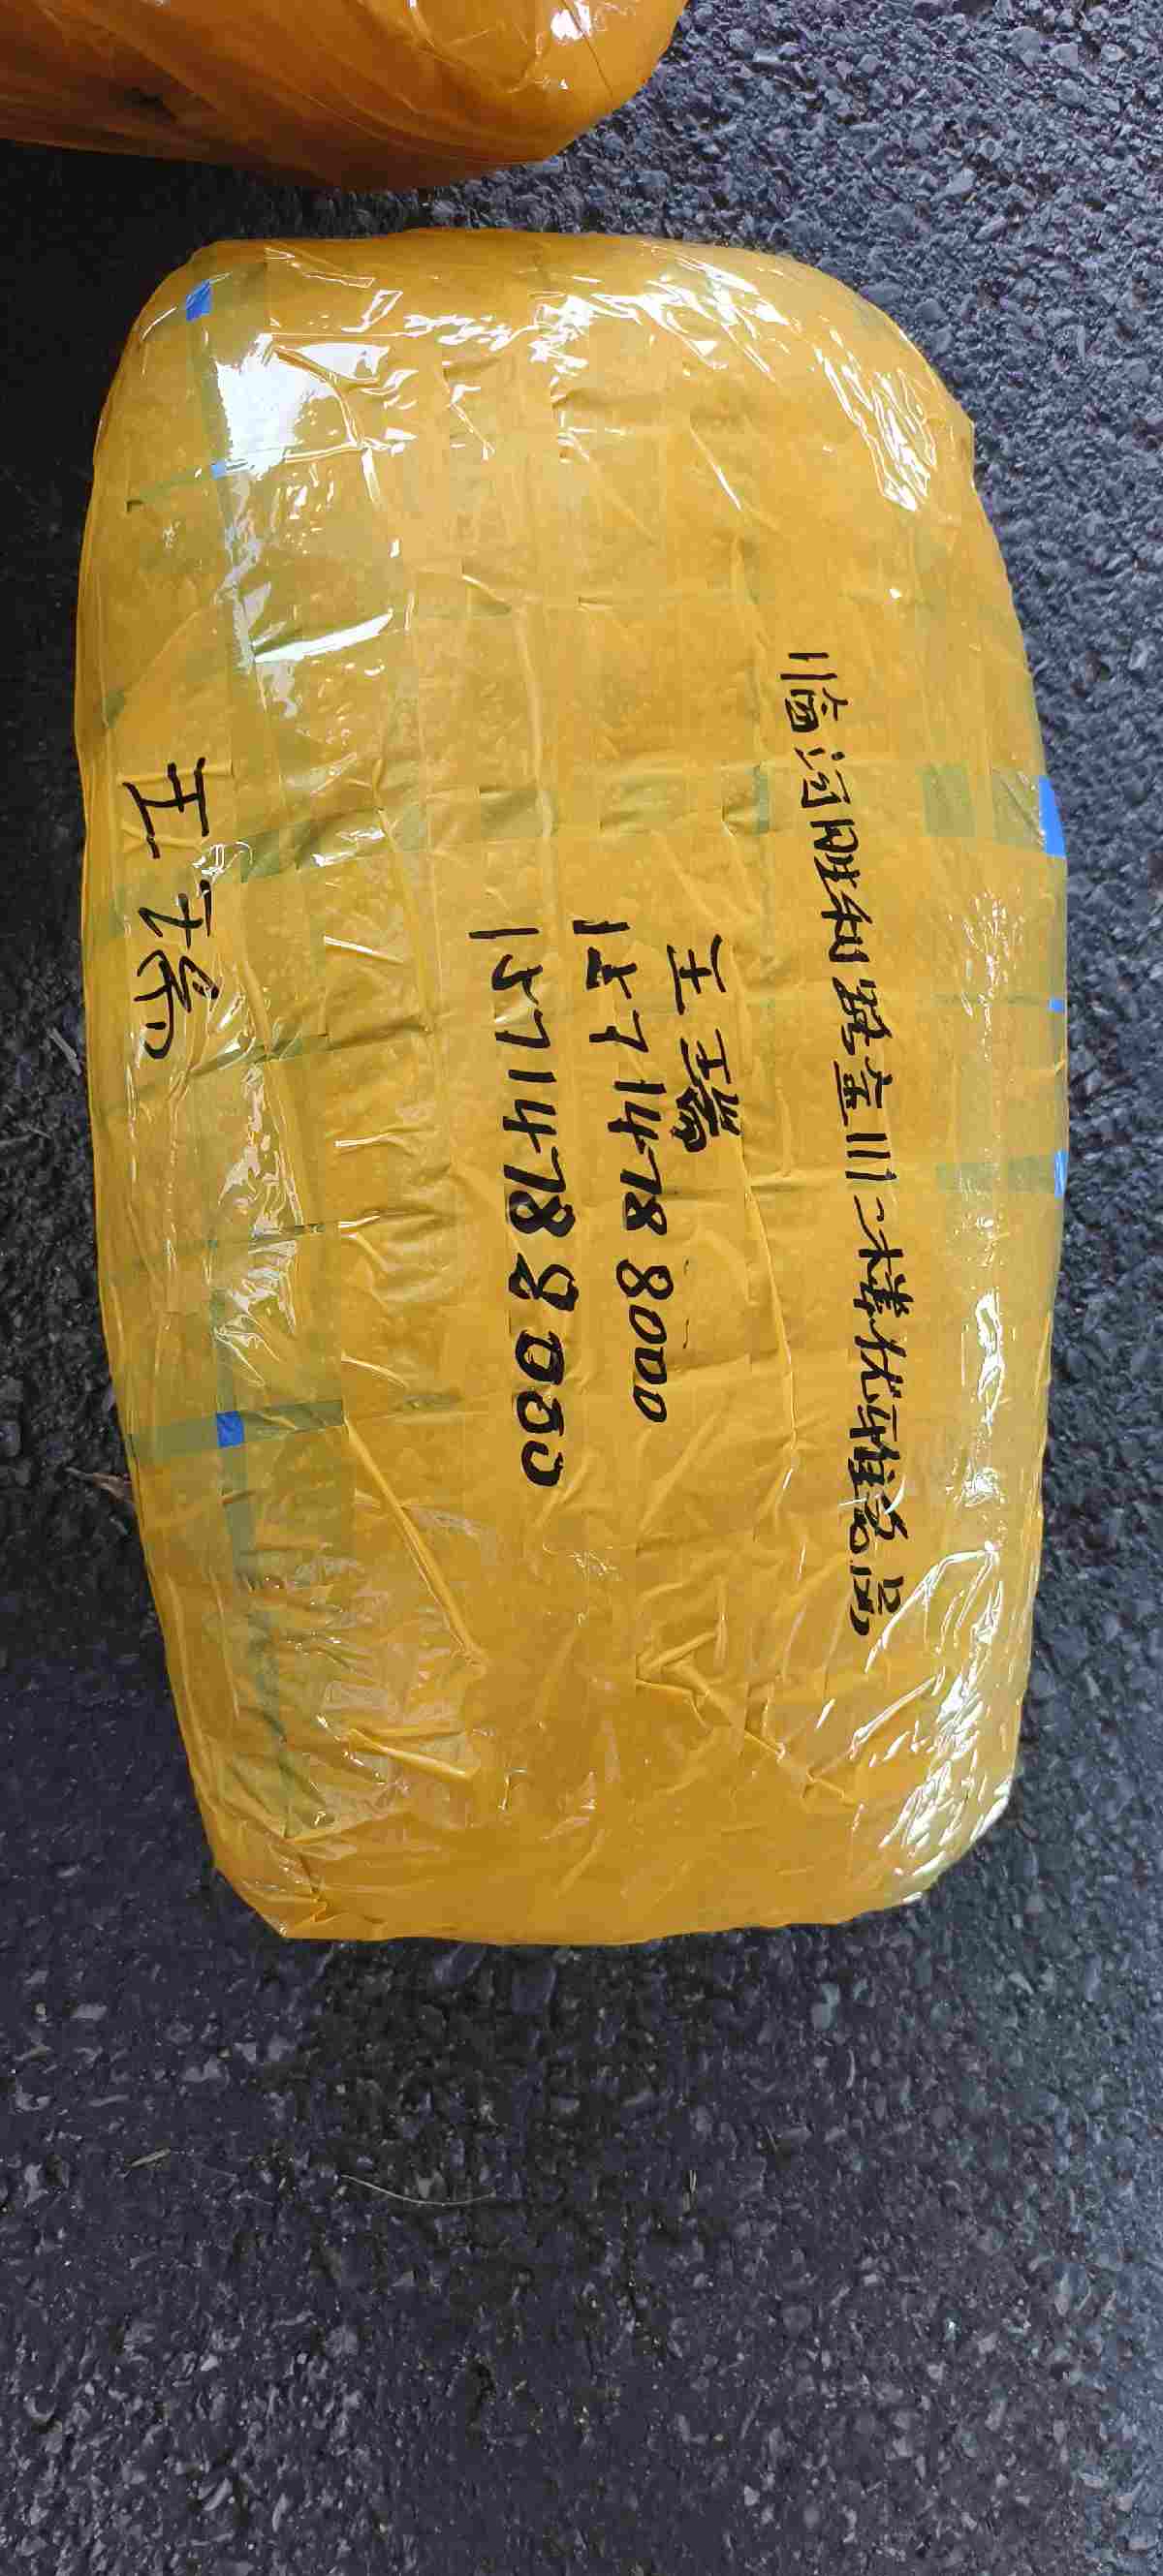 临河胜利路金川二楼优雅名店
王瑞
15714788000
15714788000
王瑞